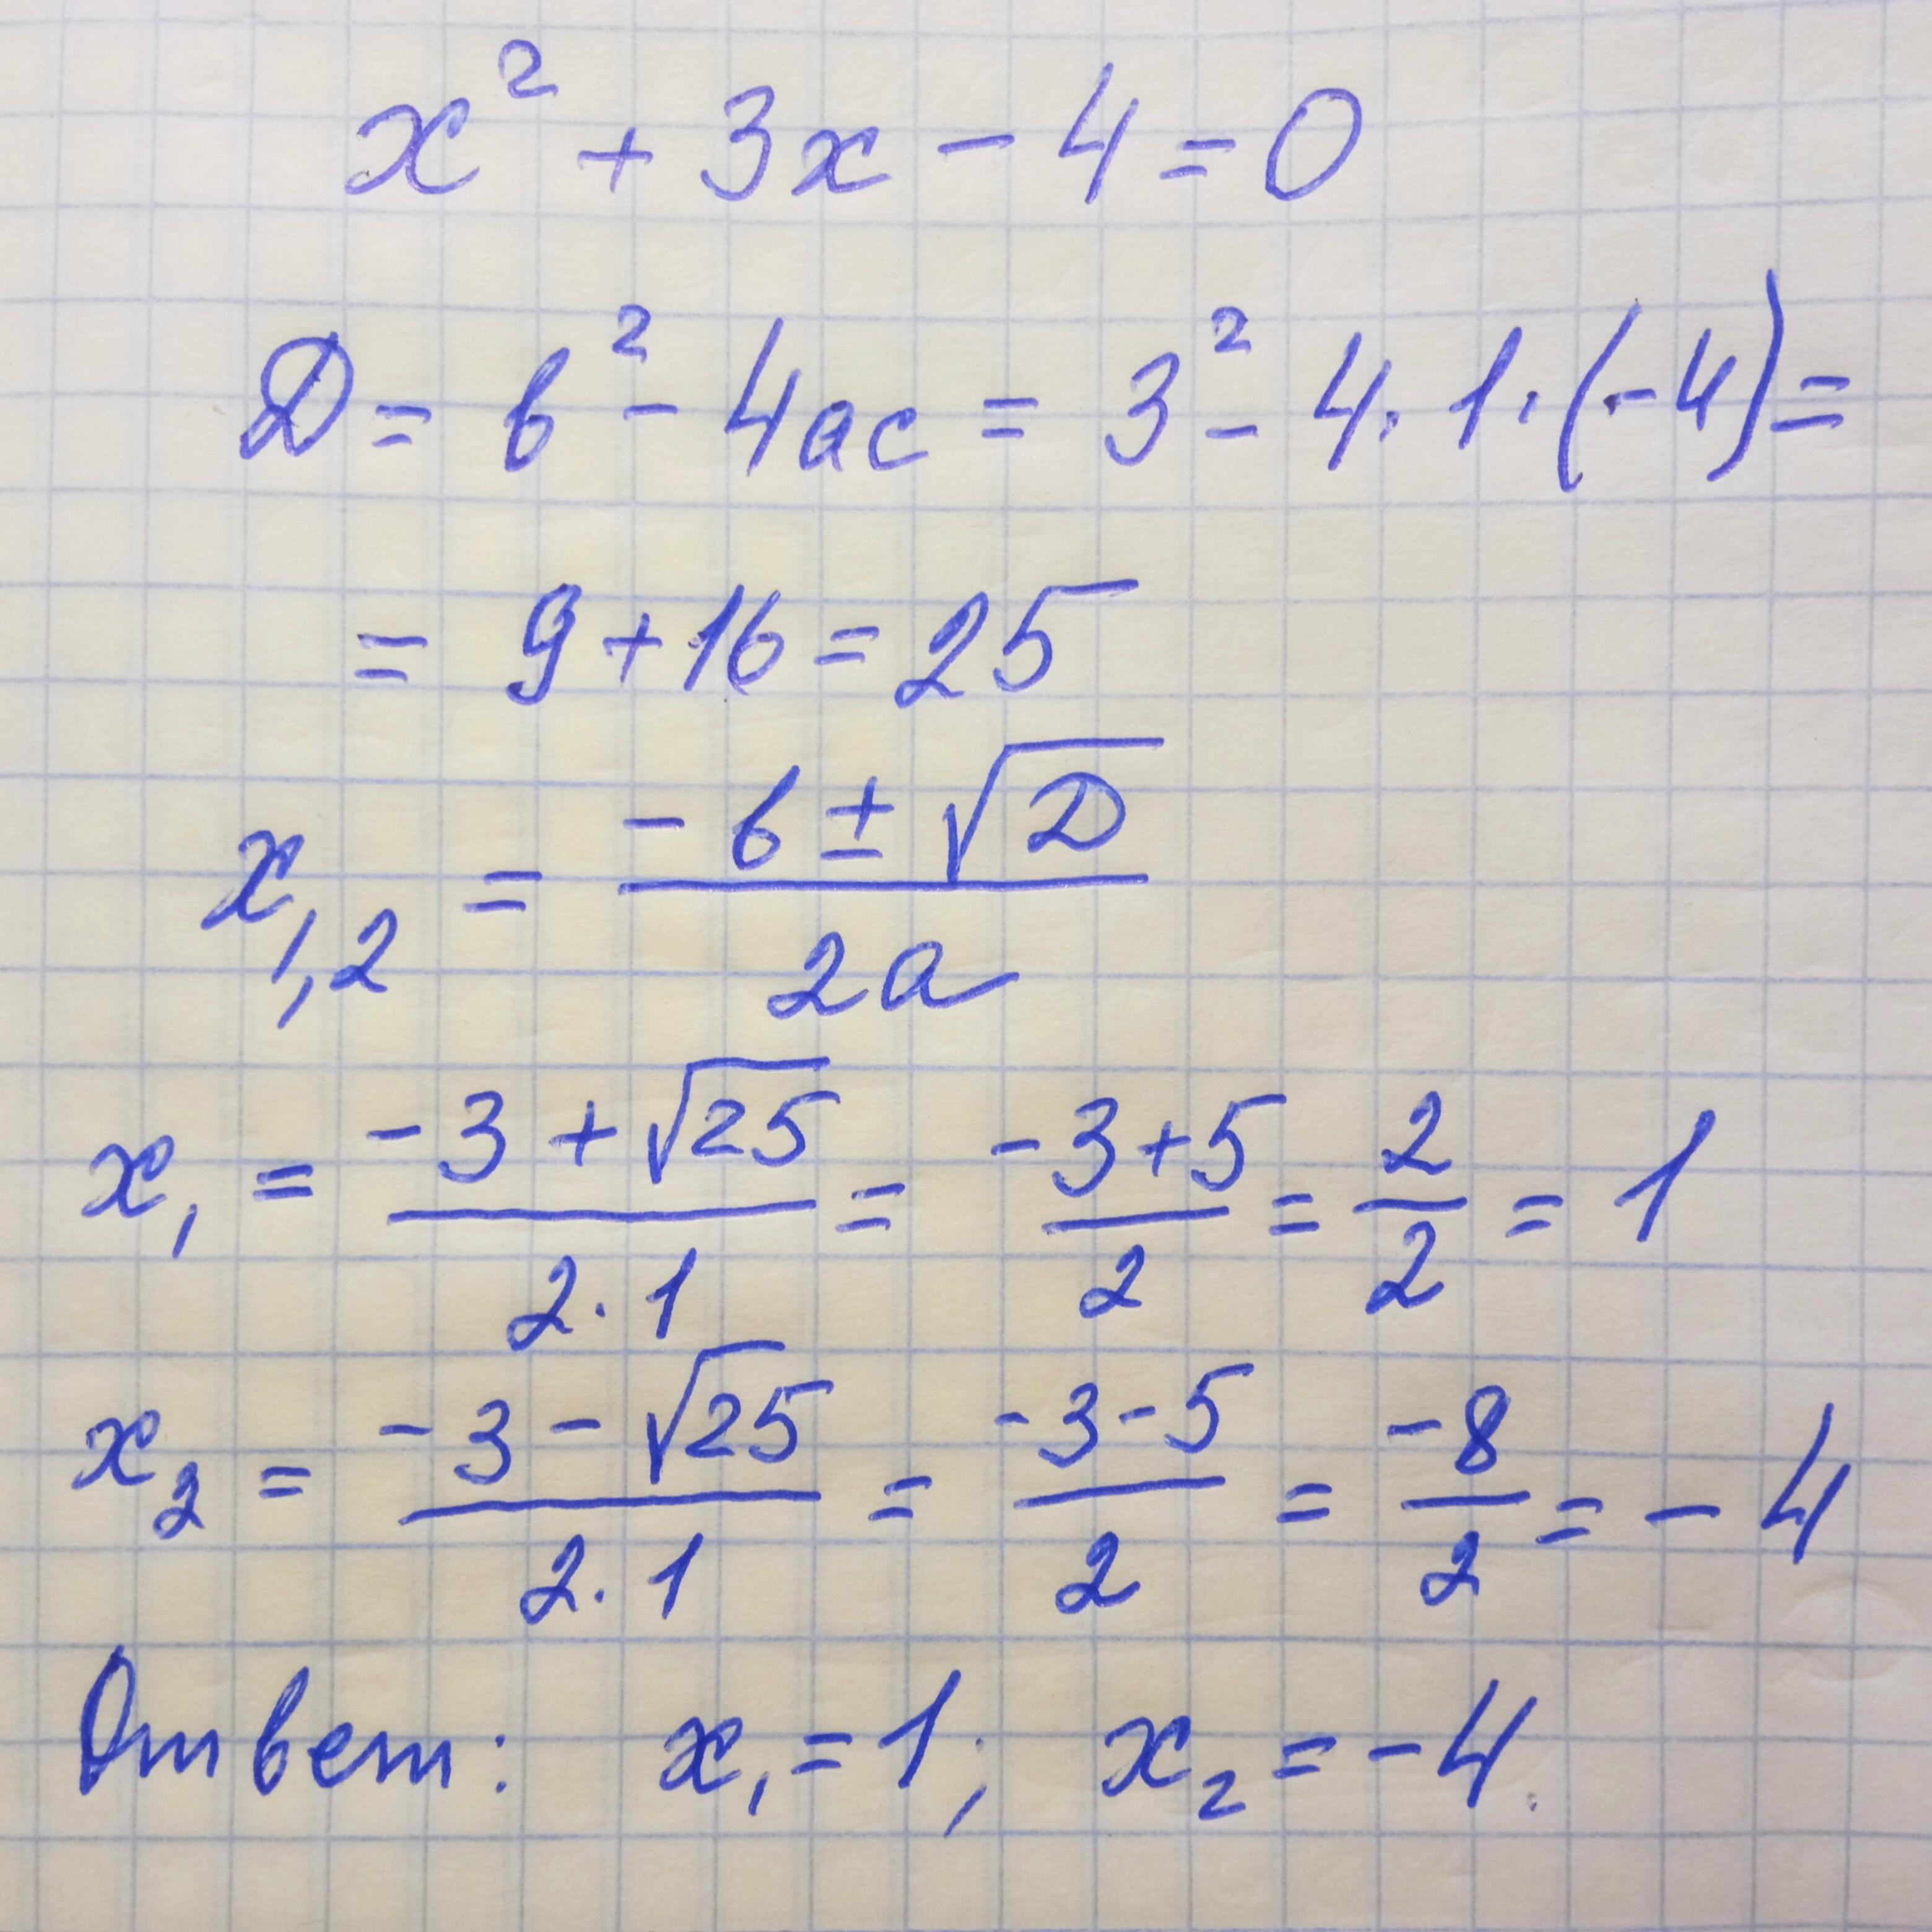 x² + 3x - 4 = 0
D = b² - 4ac = 3² - 4 · 1 · (-4) =
= 9 + 16 = 25
x₁,₂ = (-b ± √D) / 2a
x₁ = (-3 + √25) / (2 · 1) = (-3 + 5) / 2 = 2/2 = 1
x₂ = (-3 - √25) / (2 · 1) = (-3 - 5) / 2 = -8/2 = -4
Ответ: x₁ = 1; x₂ = -4.